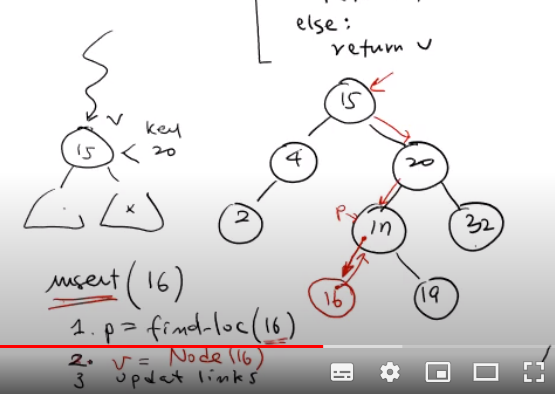 else:
return v
v
15
key
< 20
x
15
4
20
2
p
17
32
16
19
insert (16)
1. p = find-loc(16)
2. v = Node(16)
3 updat links